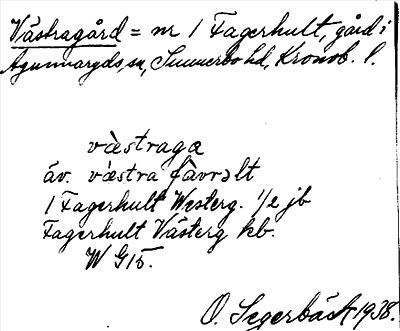 Västragård = nr 1 Fagerhult, gård i
Agunnaryds sn, Sunnerbo hd, Kronob. l.
væstraga
äv. væstra favrəlt
1 Fagerhult Westerg. 1/2 jb
Fagerhult Västerg kb.
W G15.
O. Segerbäck 1938.